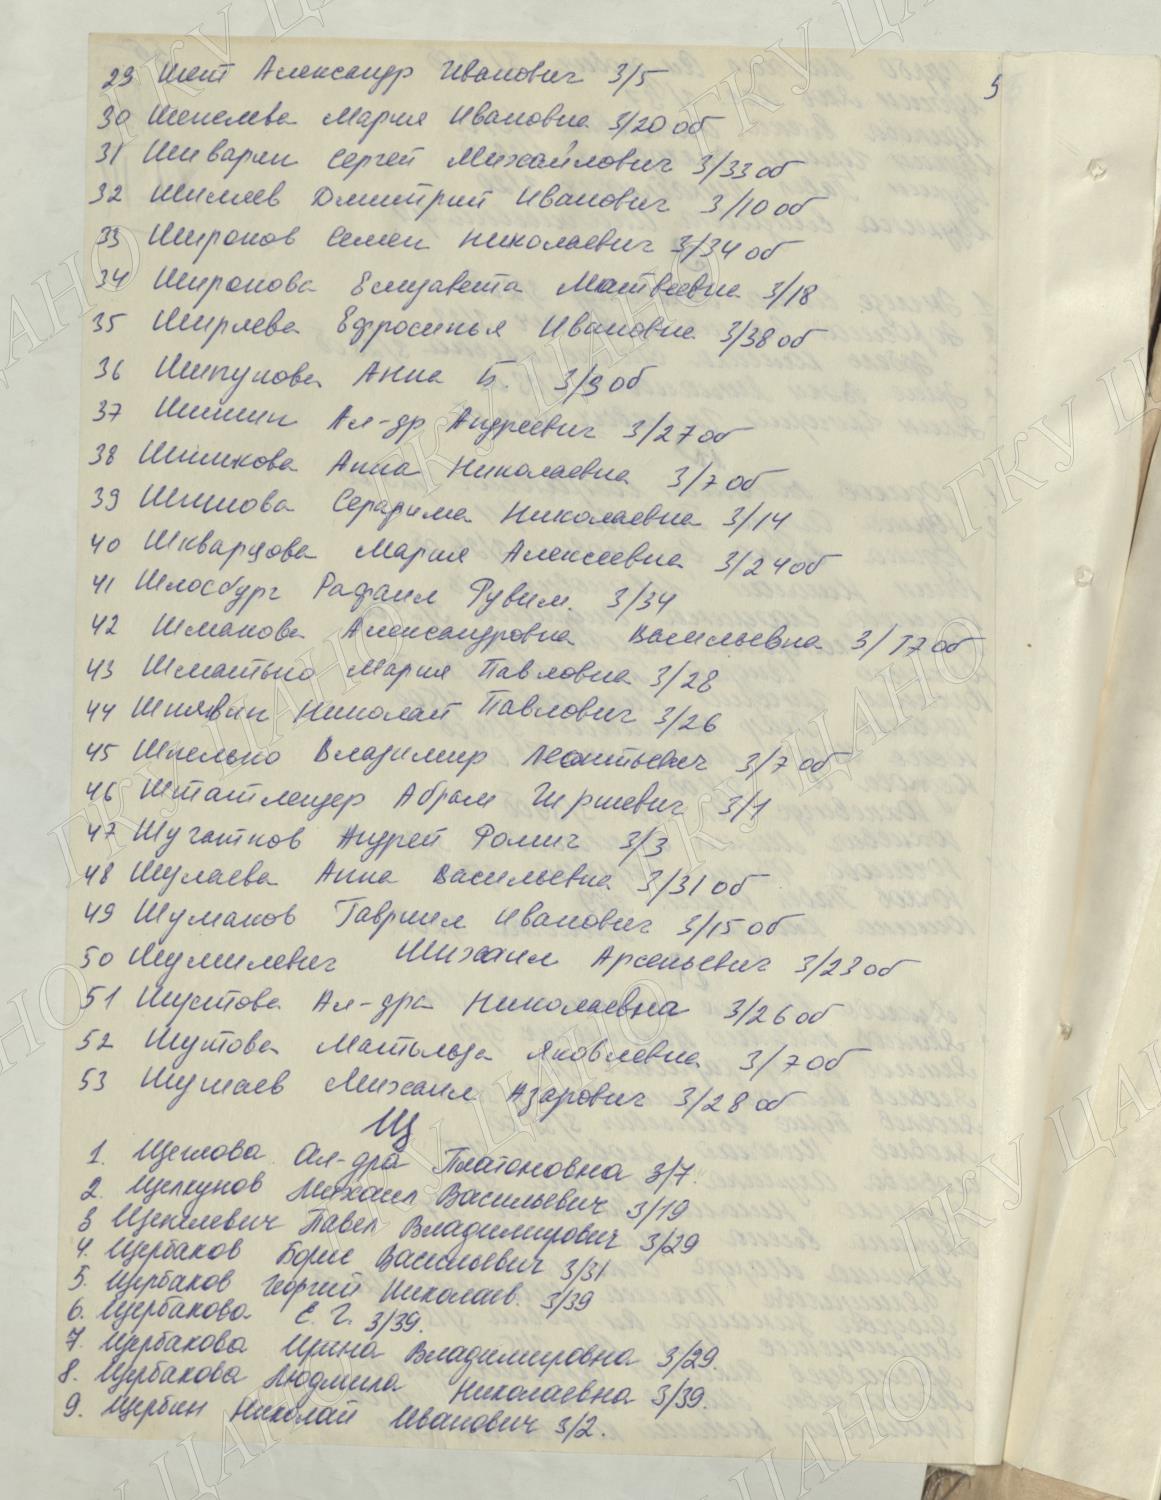 5
29 Шент Александр Иванович 3/5
30 Шепелева Мария Ивановна 3/20 об
31 Шиварин Сергей Михайлович 3/33 об
32 Шиляев Дмитрий Иванович 3/10 об
33 Широков Семен Николаевич 3/34 об
34 Широкова Елизавета Матвеевна 3/18
35 Ширяева Ефросинья Ивановна 3/38 об
36 Шипунова Анна Б. 3/9 об
37 Шишин Ал-др Андреевич 3/27 об
38 Шишкова Анна Николаевна 3/7 об
39 Шишова Серафима Николаевна 3/14
40 Шкварцова Мария Алексеевна 3/24 об
41 Шлосбург Рафаил Рувим. 3/34
42 Шмакова Александровна Васильевна 3/17 об
43 Шматько Мария Павловна 3/28
44 Николай Павлович 3/26
45 Шпелько Владимир Леонтьевич 3/7 об
46 Штатлендер Абрам Гиршевич 3/1
47 Шугатков Андрей Фомич 3/3
48 Шулаева Анна Васильевна 3/31 об
49 Шумаков Гавриил Иванович 3/15 об
50 Шумилевич Михаил Арсеньевич 3/23 об
51 Шустова Ал-дра Николаевна 3/26 об
52 Шутова Матильда Яковлевна 3/7 об
53 Шушаев Михаил Азарович 3/28 об
Щ
1. Щеглова Ал-дра Платоновна 3/7.
2. Щелкунов Михаил Васильевич 3/19
3 Щепилевич Павел Владимирович 3/29
4. Щербаков Борис Васильевич 3/31
5. Щербаков Георгий Николаев. 3/39
6. Щербакова Е. Г. 3/39.
7. Щербакова Ирина Владимировна 3/29.
8. Щербакова Людмила Николаевна 3/39.
9. Щербин Николай Иванович 3/2.
ГКУ ЦАНО